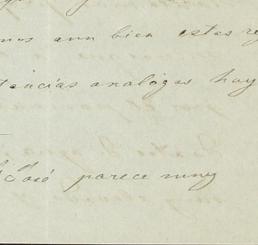 mos aun bien estas re
tencias analogas hay
José parece muy